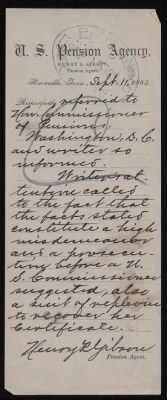 U. S. Pension Agency,
HENRY R. GIBSON,
Pension Agent.
Knoxville, Tenn., Sept. 16, 1885
Respectfully referred to
Hon. Commissioner
of Pensions,
Washington, D.C.
and writer so
informed.
Writer's at
tention called
to the fact that
the facts stated
constitute a high
misdemeanor
and a prosecu
ting before a U.
S. Commissioner
suggested, also
a suit of replevin
to recover her
Certificate.
Henry R. Gibson
Pension Agent.